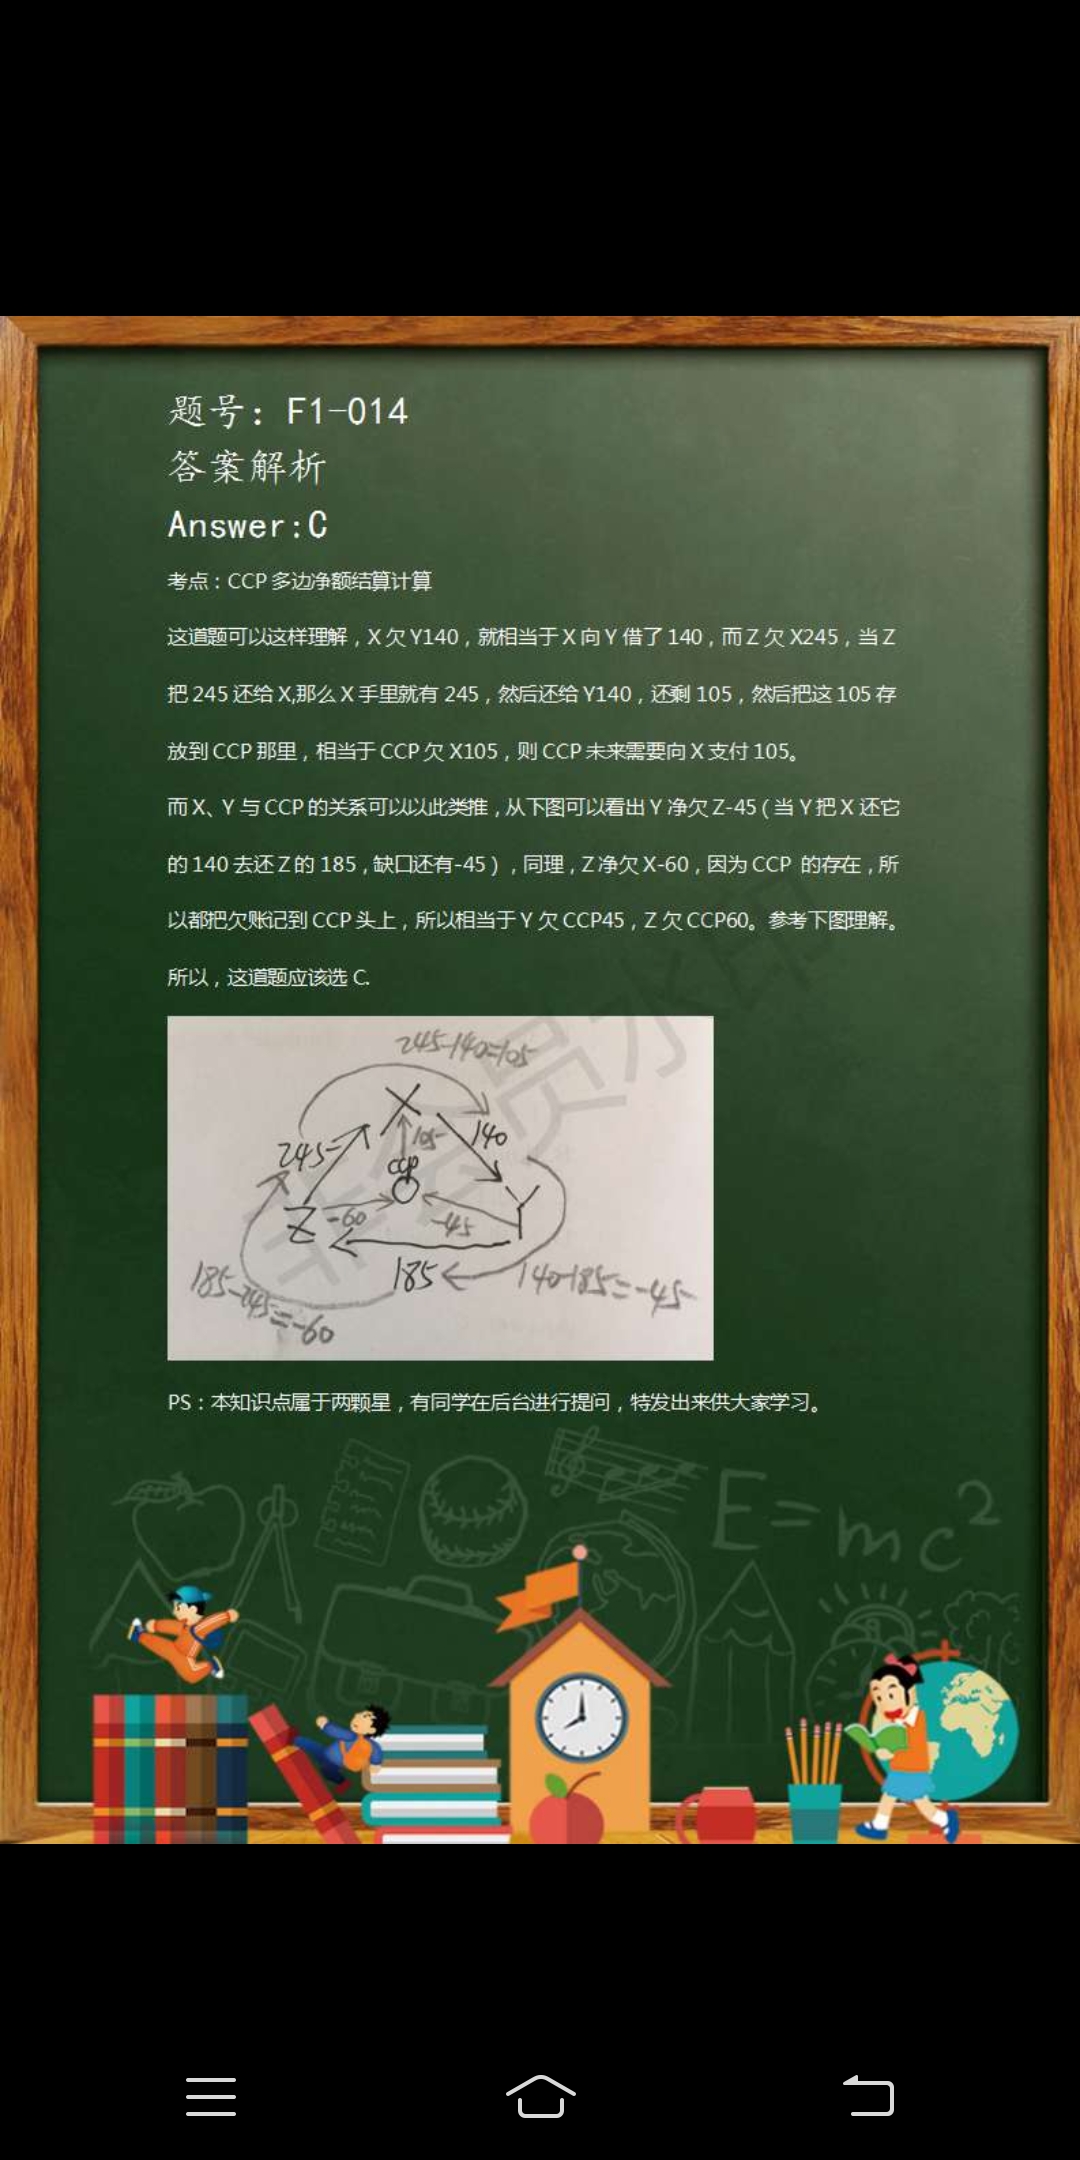 题号：F1-014
答案解析
Answer:C
考点：CCP 多边净额结算计算
这道题可以这样理解，X 欠 Y140，就相当于 X 向 Y 借了 140，而 Z 欠 X245，当 Z
把 245 还给 X,那么 X 手里就有 245，然后还给 Y140，还剩 105，然后把这 105 存
放到 CCP 那里，相当于 CCP 欠 X105，则 CCP 未来需要向 X 支付 105。
而 X、Y 与 CCP 的关系可以以此类推，从下图可以看出 Y 净欠 Z-45（当 Y 把 X 还它
的 140 去还 Z 的 185，缺口还有-45），同理，Z 净欠 X-60，因为 CCP 的存在，所
以都把欠账记到 CCP 头上，所以相当于 Y 欠 CCP45，Z 欠 CCP60。参考下图理解。
所以，这道题应该选 C.
245-140=105
X
245
105
140
CCP
Z
-60
-45
Y
185
140-185=-45
185-245=-60
非会员水印
PS：本知识点属于两颗星，有同学在后台进行提问，特发出来供大家学习。
E=mc²